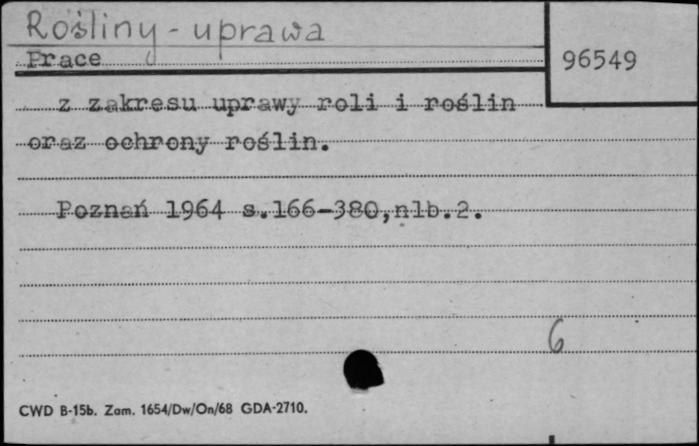 Rośliny - uprawa
Prace
96549
z zakresu uprawy roli i roślin
oraz ochrony roślin.
Poznań 1964 s.166-380,nlb.2.
6
CWD B-15b. Zam. 1654/Dw/On/68 GDA-2710.